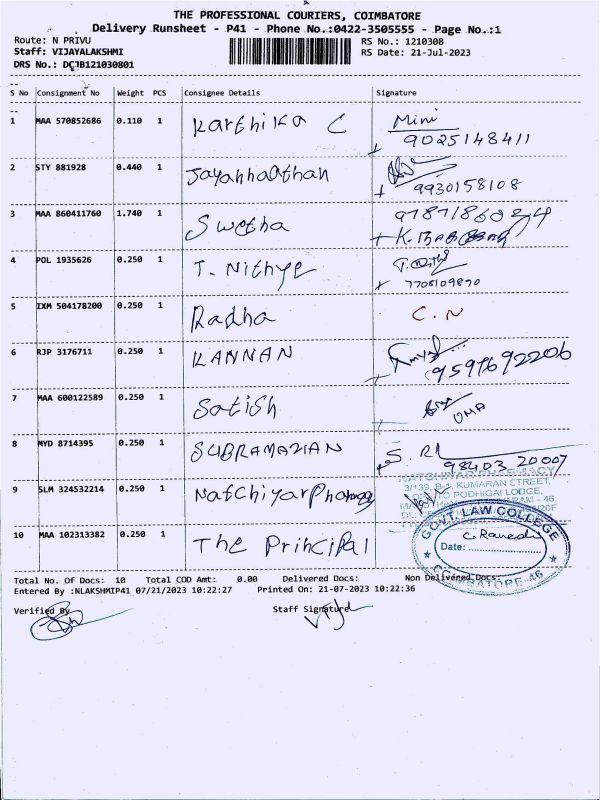 THE PROFESSIONAL COURIERS, COIMBATORE
Delivery Runsheet - P41 - Phone No.:0422-3505555 - Page No.:1
Route: N PRIVU
RS No.: 1210308
Staff: VIJAYALAKSHMI
RS Date: 21-Jul-2023
DRS No.: DCJB121030801
S No Consignment No Weight PCS Consignee Details Signature
1 MAA 570852686 0.110 1 Karthika C Mini
9025148411
2 STY 881928 0.440 1 Jayanhathan
9930158108
3 MAA 860411760 1.740 1 Swetha
4 POL 1935626 0.250 1 T. Nithye
7708109890
5 IXM 504178200 0.250 1 Radha C.N
6 RJP 3176711 0.250 1 KANNAN
9597692206
7 MAA 600122589 0.250 1 Satish
UMA
8 MYD 8714395 0.250 1 SUBRAMANIAN S. RI
98403 20007
9 SLM 324532214 0.250 1 Natchiyar
3/139, B-1, KUMARAN STREET,
PODHIGAI LODGE,
10 MAA 102313382 0.250 1 The Principal
GOVT. LAW COLLEGE
Date:
COIMBATORE-46
Total No. Of Docs: 10 Total COD Amt: 0.00 Delivered Docs: Non Delivered Docs:
Entered By :NLAKSHMIP41 07/21/2023 10:22:27 Printed On: 21-07-2023 10:22:36
Verified By Staff Signature